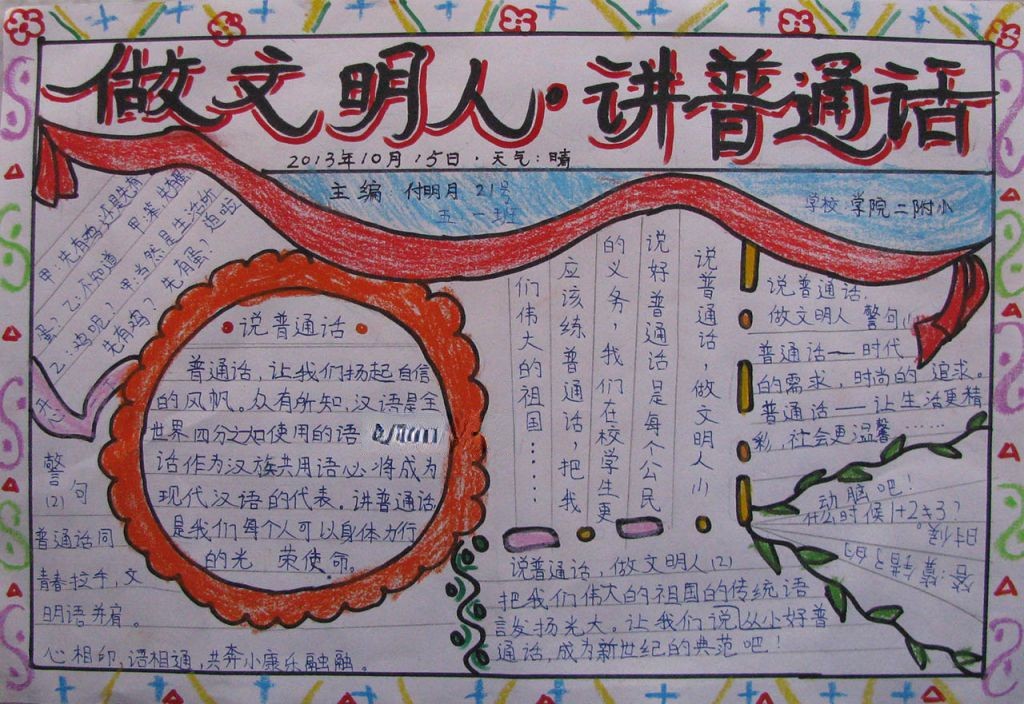 做文明人·讲普通话
2013年10月15日·天气:晴
主编 付明月 21号
五一班
学校 学院二附小
甲:先有鸡还是先有
蛋?乙:不知道
乙:鸡呢,甲:当然是生活所
先有鸡?先有蛋?
说普通话
普通话,让我们扬起自信
的风帆。众有所知,汉语是全
世界四分之如使用的语
话作为汉族共用语必将成为
现代汉语的代表。讲普通话
是我们每个人可以身体力行
的光 荣使命。
警句
(2)
普通话同
青春拉手,文
明语并肩。
心相印,语相通,共奔小康乐融融。
说普通话,做文明人(1)
说好普通话是每个公民
的义务,我们在校学生更
应该练普通话,把我
们伟大的祖国……
说普通话,做文明人(2)
把我们伟大的祖国的传统语
言发扬光大。让我们说从小好普
通话,成为新世纪的典范吧!
说普通话,
做文明人 警句(1)
普通话——时代
的需求,时尚的 追求。
普通话——让生活更精
彩,社会更温馨……
动脑吧!
什么时候1+2≠3?
答:算错了的
时候。